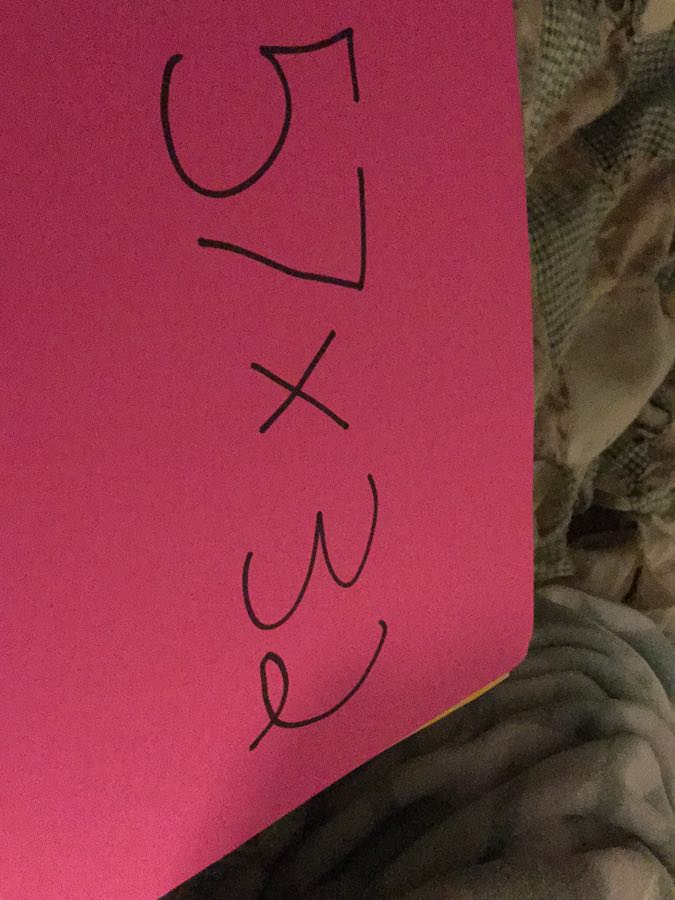 57 x 32